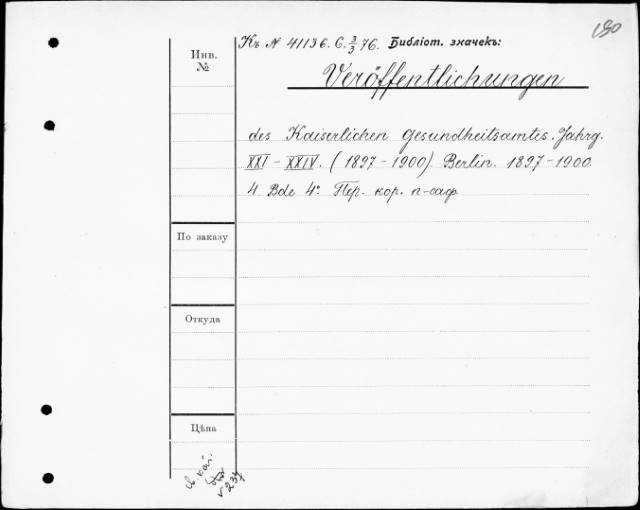 190
Къ № 41136. С. 3/3 76. Библіот. значекъ:
Инв.
№
Veröffentlichungen
des Kaiserlichen Gesundheitsamtes. Jahrg.
XXI - XXIV. (1897 - 1900). Berlin. 1897 - 1900.
4 Bde 4°. Пер. кор. п-саф.
По заказу
Откуда
Цѣна
v 237